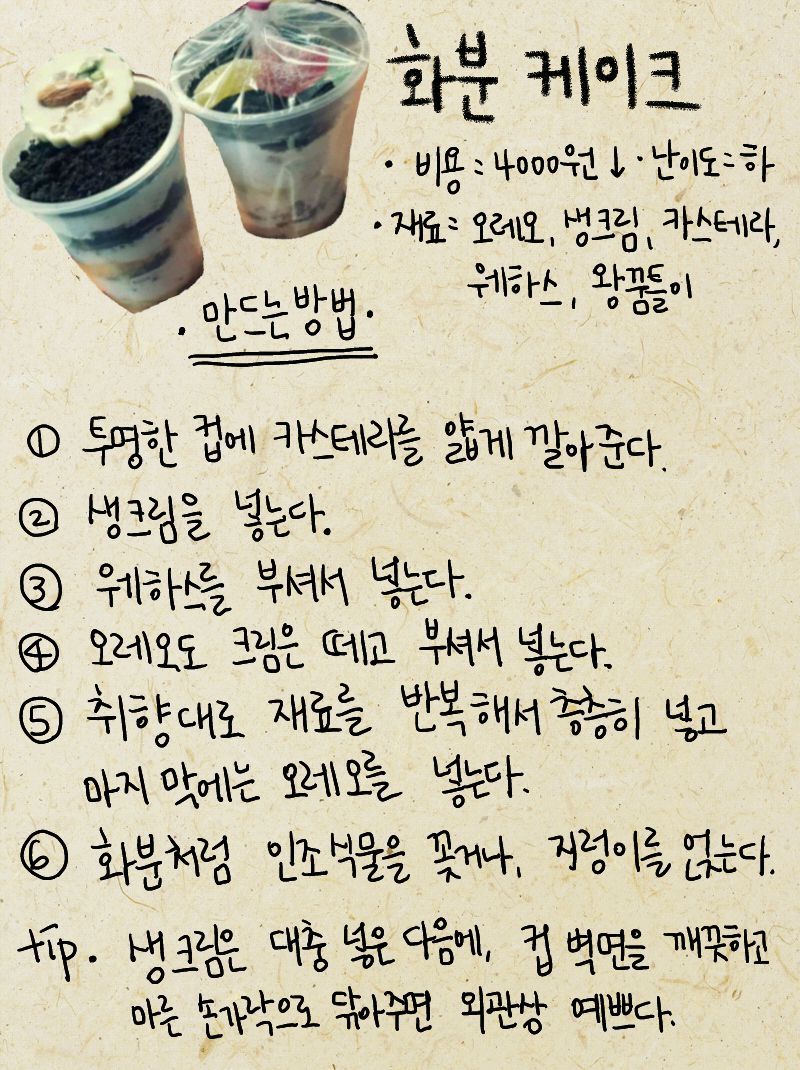 화분 케이크
· 비용 = 4000원↓ · 난이도 = 하
· 재료 = 오레오, 생크림, 카스테라,
웨하스, 왕꿈틀이
· 만드는 방법 ·
① 투명한 컵에 카스테라를 얇게 깔아준다.
② 생크림을 넣는다.
③ 웨하스를 부셔서 넣는다.
④ 오레오도 크림은 떼고 부셔서 넣는다.
⑤ 취향대로 재료를 반복해서 층층히 넣고
마지막에는 오레오를 넣는다.
⑥ 화분처럼 인조식물을 꽂거나, 지렁이를 얹는다.
tip. 생크림은 대충 넣은 다음에, 컵 벽면을 깨끗하고
마른 손가락으로 닦아주면 외관상 예쁘다.